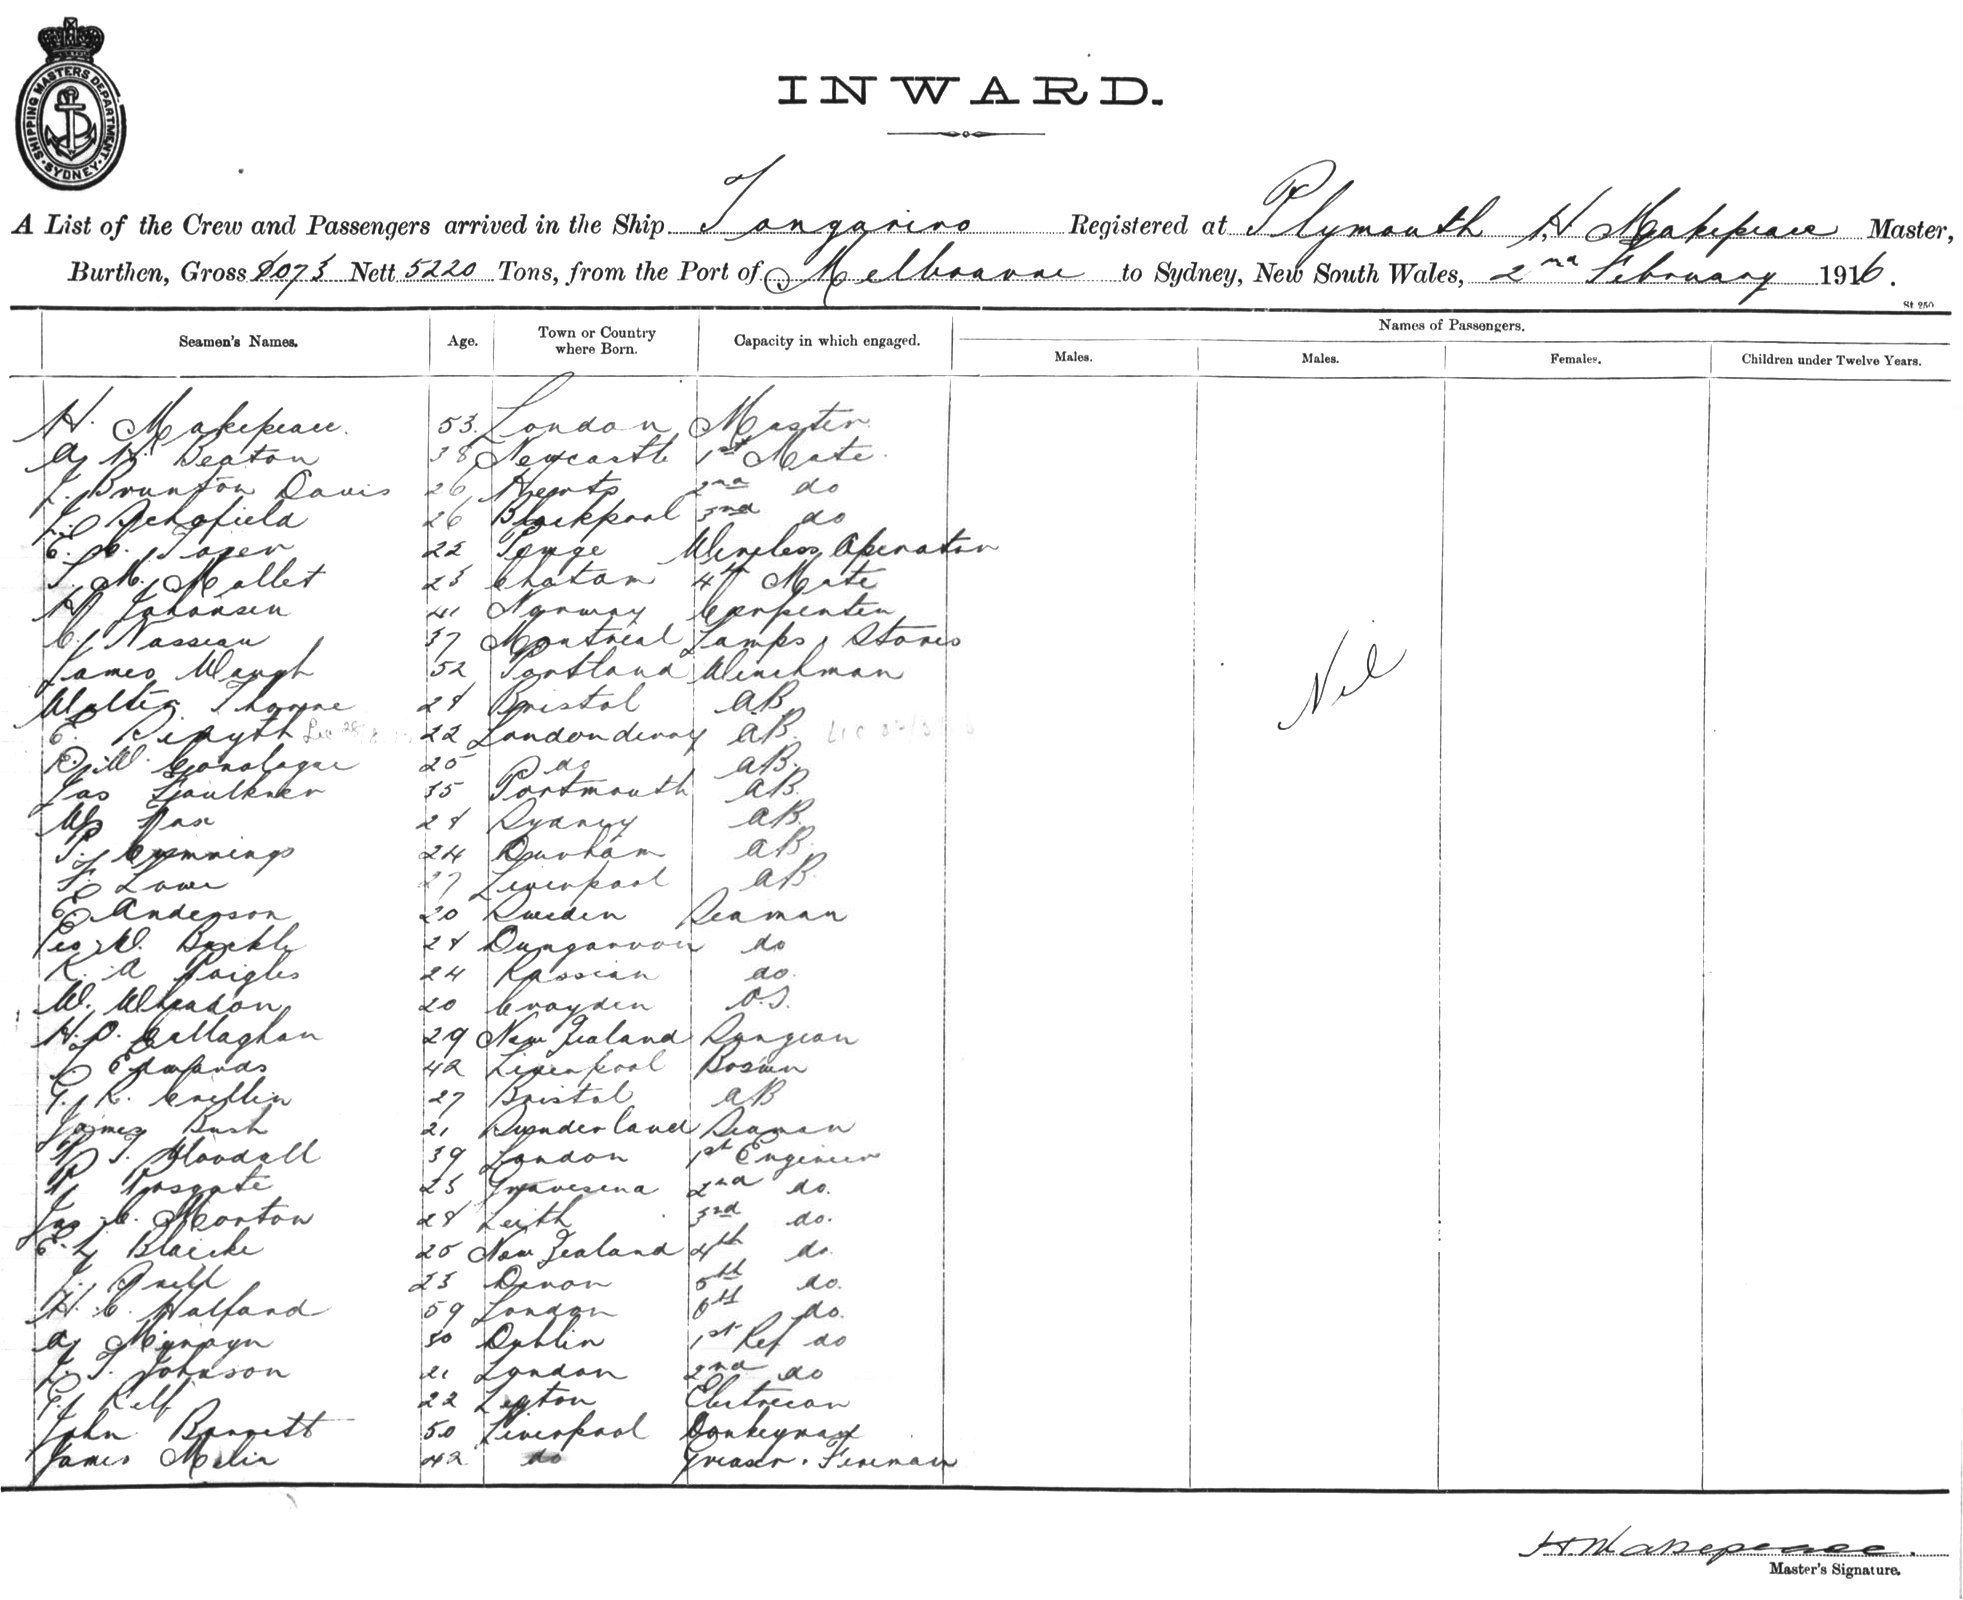 SHIPPING MASTERS DEPARTMENT · SYDNEY ·
INWARD.
A List of the Crew and Passengers arrived in the Ship Tongariro Registered at Plymouth H Makepeace Master,
Burthen, Gross 8073 Nett 5220 Tons, from the Port of Melbourne to Sydney, New South Wales, 2nd February 1916.
St 250
Seamen's Names. Age. Town or Country where Born. Capacity in which engaged. Names of Passengers.
Males. Males. Females. Children under Twelve Years.
H. Makepeace. 53. London Master
A H. Beaton 38 Newcastle 1st Mate.
J. Brunton Davis 26 Hents 2nd do
Schofield 26 Blackpool 3rd do
E. Toper 22 Penge Wireless Operator
T. M. Mallet 23 Chatam 4th Mate
H Johansen 41 Norway Carpenter
C. Nasseau 37 Montreal Lamps, Stores
James Waugh 52 Portland Winchman
Walter Thorne 28 Bristol AB
E. Smyth 22 Londonderry AB.
R. W. Conologue 25 do AB.
Jas Faulkner 35 Portmouth AB.
W 28 Sydney AB.
P. Cummings 24 Durham AB.
F. Lowe 27 Liverpool AB.
E Anderson 20 Sweden Seaman
Geo. W. Buckle 28 Dungarvon do
K. A Paigles 24 Russian do.
W. Wheadon 20 Croyden O.S.
H. O. Callaghan 29 New Zealand Surgeon
Edwards 42 Liverpool Bosun
G. R. Crellin 27 Bristol AB
James Bush 21 Sunderland Seaman
T. Woodall 39 London 1st Engineer
Posgate 23 Gravesend 2nd do.
Jas. C. Morton 28 Leith 3rd do.
E. Blaicke 25 New Zealand 4th do.
J. Snell 23 Devon 5th do.
H. C. Halford 59 London 6th do.
A 30 Dublin 1st Ref do
J. T. Johnson 21 London 2nd do
G. Relf 22 Leyton Electrecian
John Bennett 50 Liverpool Donkeyman
James Melia 42 do Greaser. Fireman
Nil
H Makepeace.
Master's Signature.